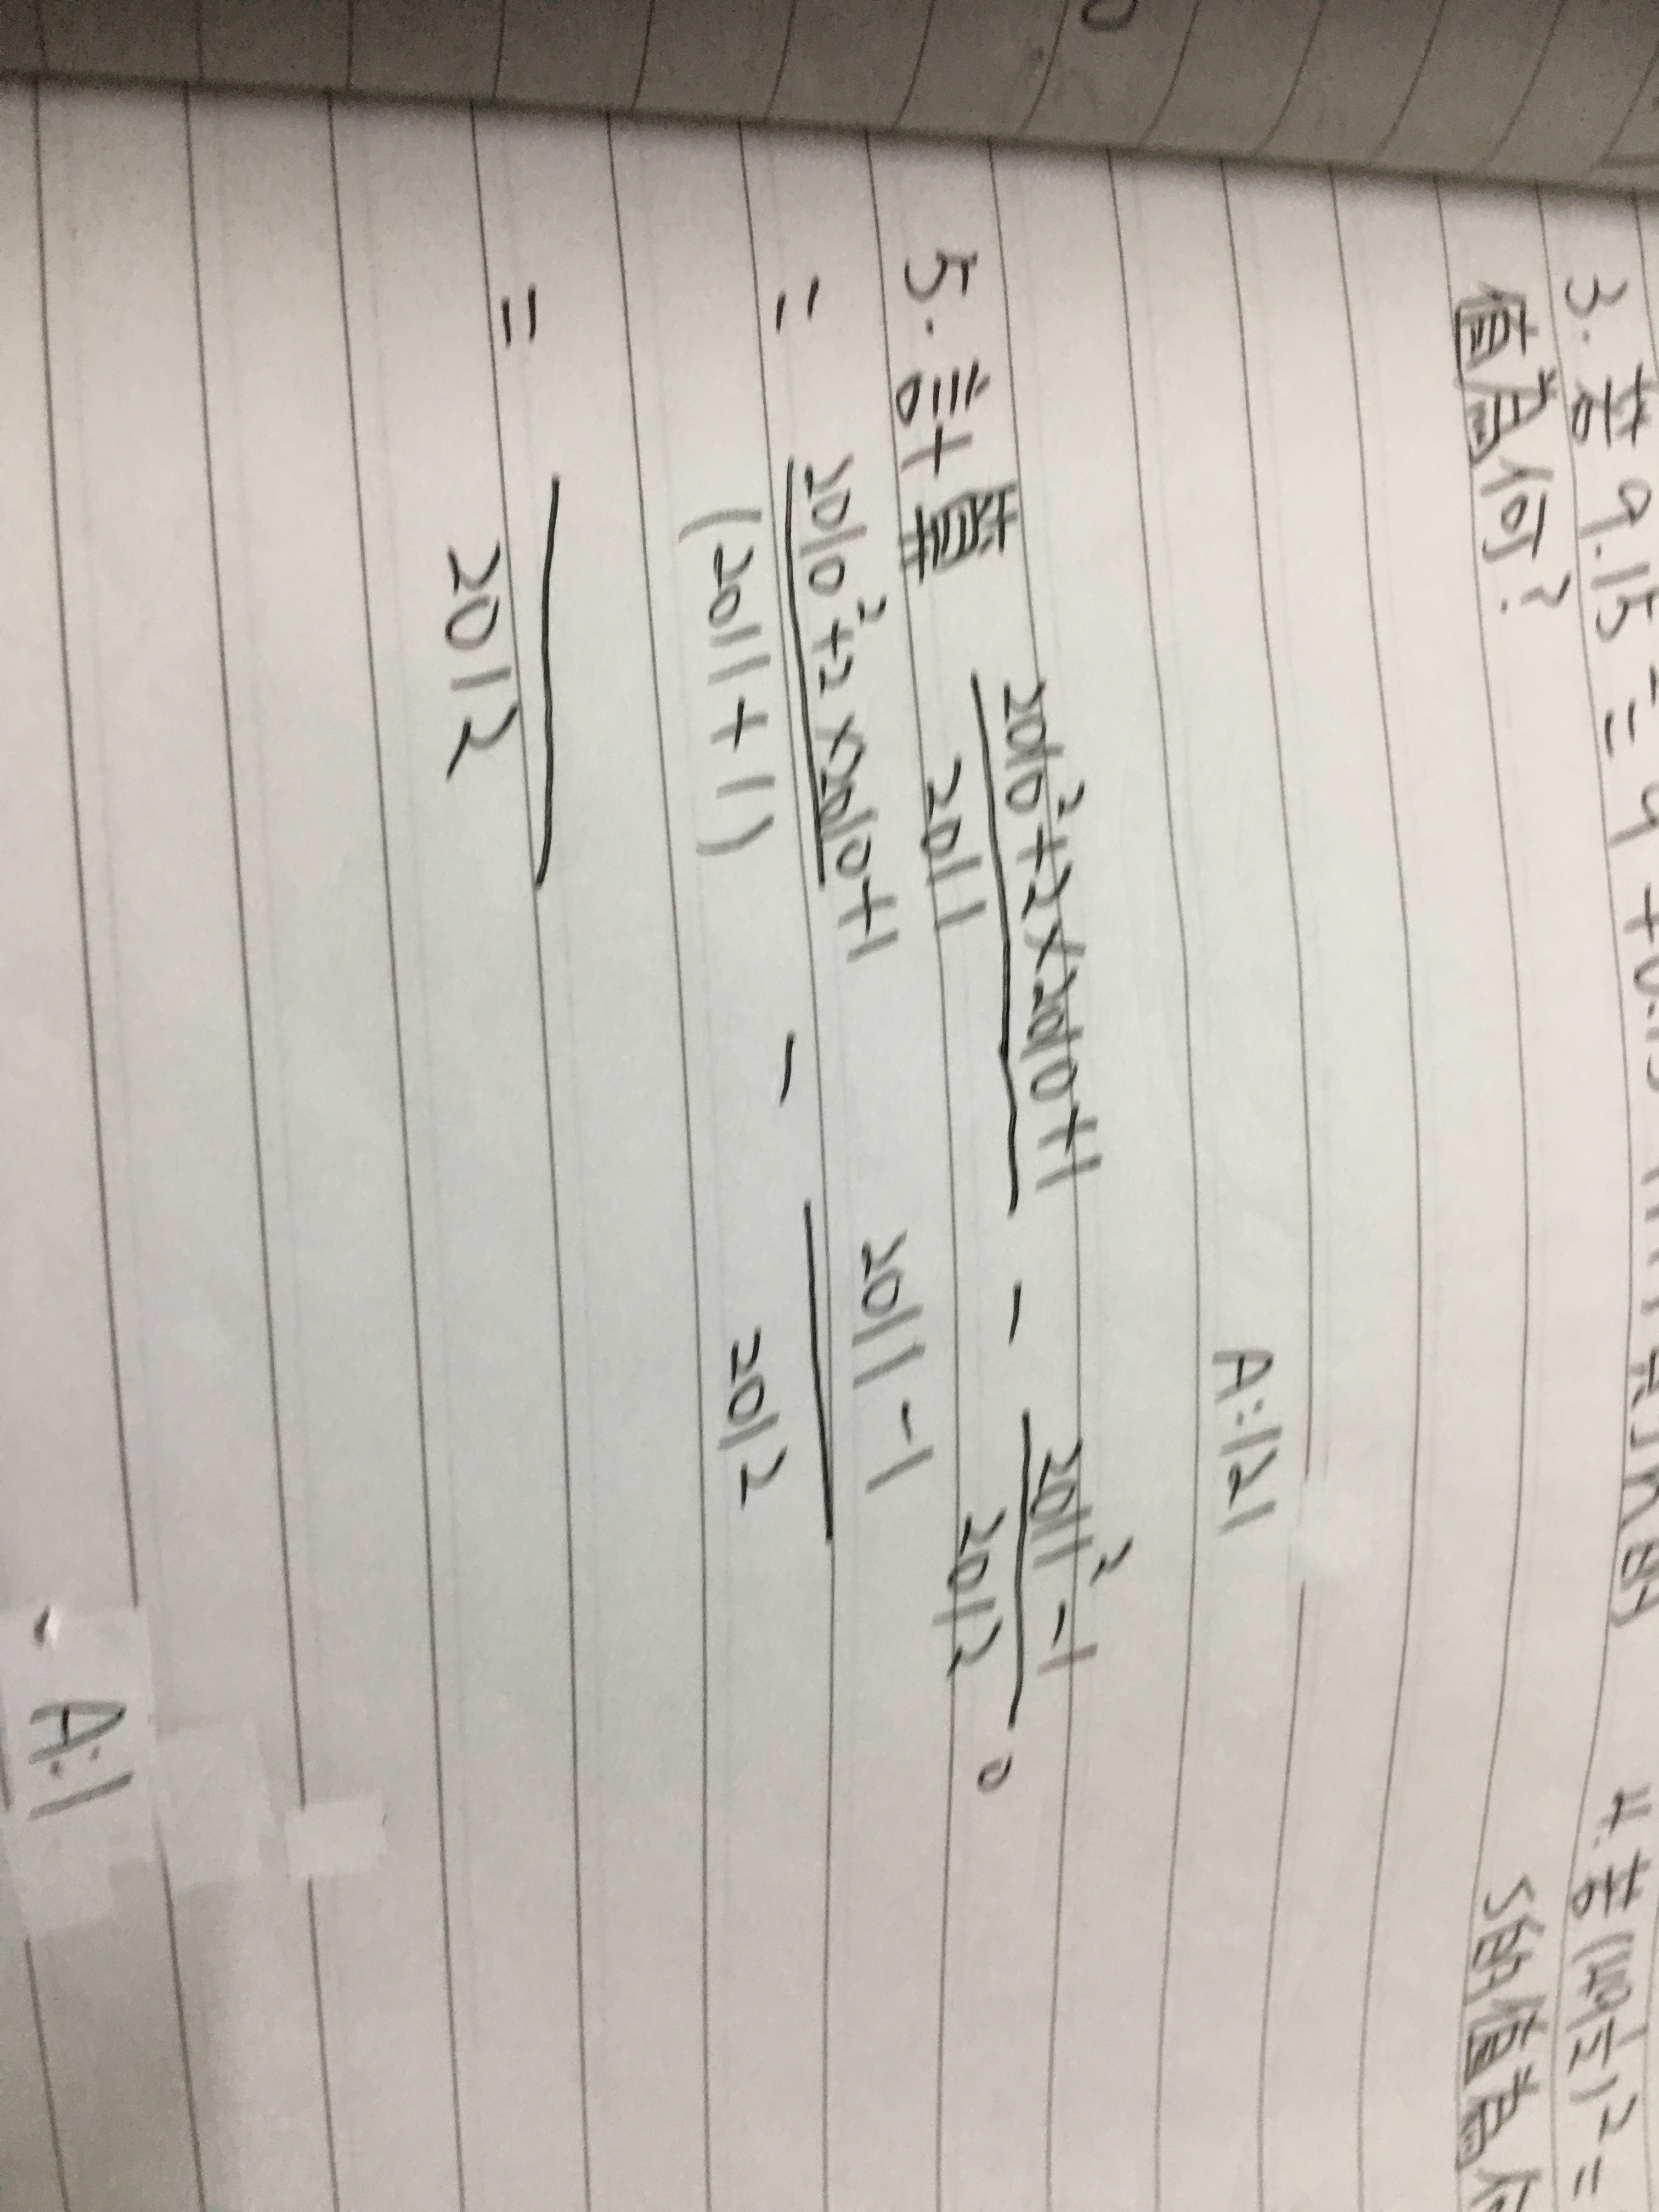 3. 若9.15²=9²+0.15²
值為何?
4. 若(149
S的值為何
A:121
5. 計算 2010²+2×2010+1 / 2011 - 2011²-1 / 2012 。
= 2010²+2×2010+1 / (2011+1) - 2011-1 / 2012
= / 2012
A:1